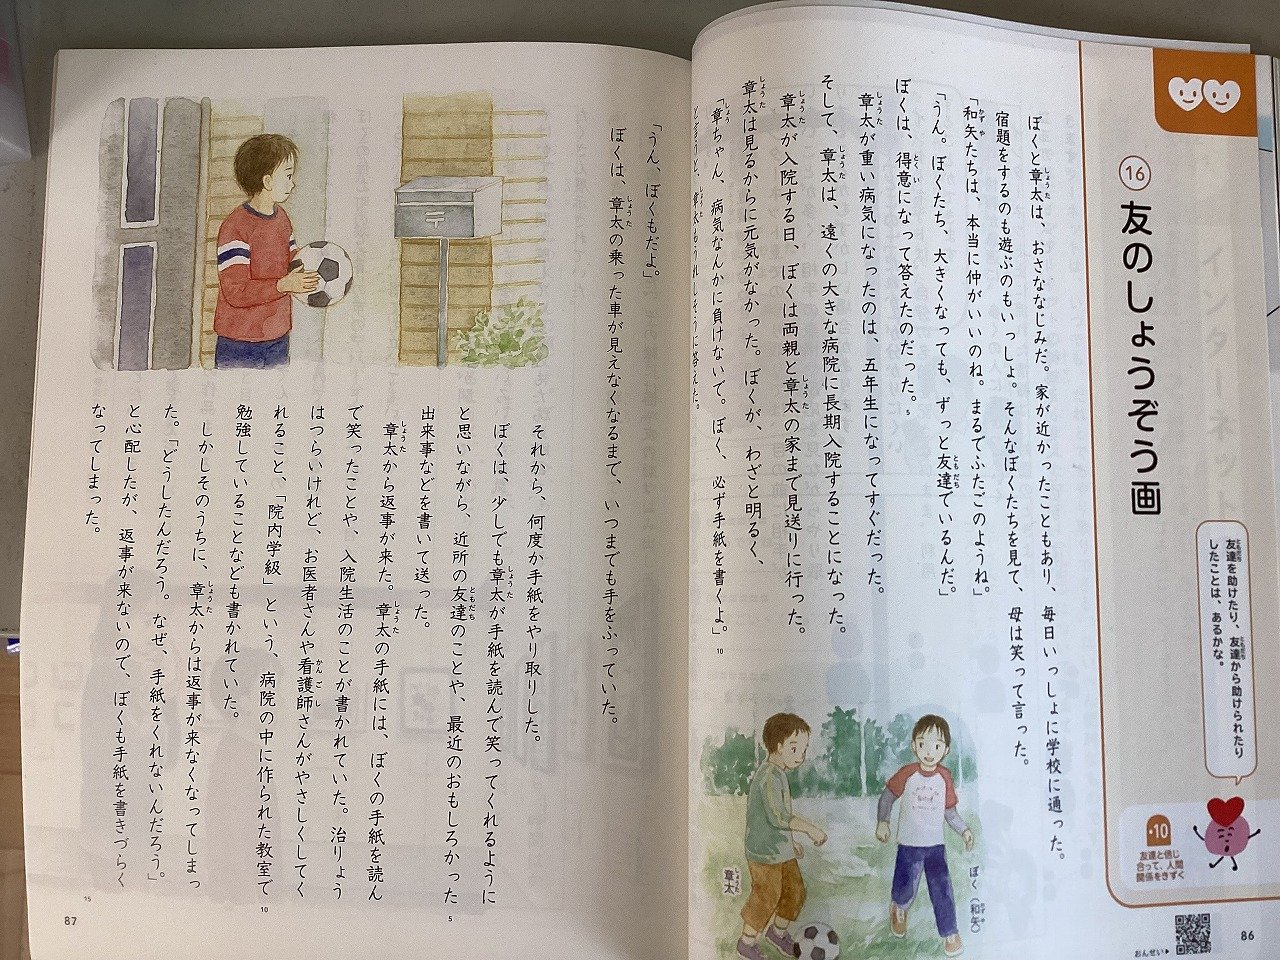 ⑯
友のしょうぞう画
友達を助けたり、友達から助けられたり
したことは、あるかな。
・10
友達と信じ
合って、人間
関係をきずく
ぼくと章太は、おさななじみだ。家が近かったこともあり、毎日いっしょに学校に通った。
宿題をするのも遊ぶのもいっしょ。そんなぼくたちを見て、母は笑って言った。
「和矢たちは、本当に仲がいいのね。まるでふたごのようね」
「うん。ぼくたち、大きくなっても、ずっと友達でいるんだ。」
ぼくは、得意になって答えたのだった。
5
章太が重い病気になったのは、五年生になってすぐだった。
そして、章太は、遠くの大きな病院に長期入院することになった。
章太が入院する日、ぼくは両親と章太の家まで見送りに行った。
章太は見るからに元気がなかった。ぼくが、わざと明るく、
「章ちゃん、病気なんかに負けないで。ぼく、必ず手紙を書くよ。」
10
と言うと、章太もうれしそうに答えた。
ぼく（和矢）
章太
おんせい▶
86
「うん、ぼくもだよ。」
ぼくは、章太の乗った車が見えなくなるまで、いつまでも手をふっていた。
それから、何度か手紙をやり取りした。
ぼくは、少しでも章太が手紙を読んで笑ってくれるように
と思いながら、近所の友達のことや、最近のおもしろかった
5
出来事などを書いて送った。
章太から返事が来た。章太の手紙には、ぼくの手紙を読ん
で笑ったことや、入院生活のことが書かれていた。治りょう
はつらいけれど、お医者さんや看護師さんがやさしくしてく
れること、「院内学級」という、病院の中に作られた教室で
10
勉強していることなども書かれていた。
しかしそのうちに、章太からは返事が来なくなってしまっ
た。「どうしたんだろう。なぜ、手紙をくれないんだろう。」
と心配したが、返事が来ないので、ぼくも手紙を書きづらく
なってしまった。
15
87